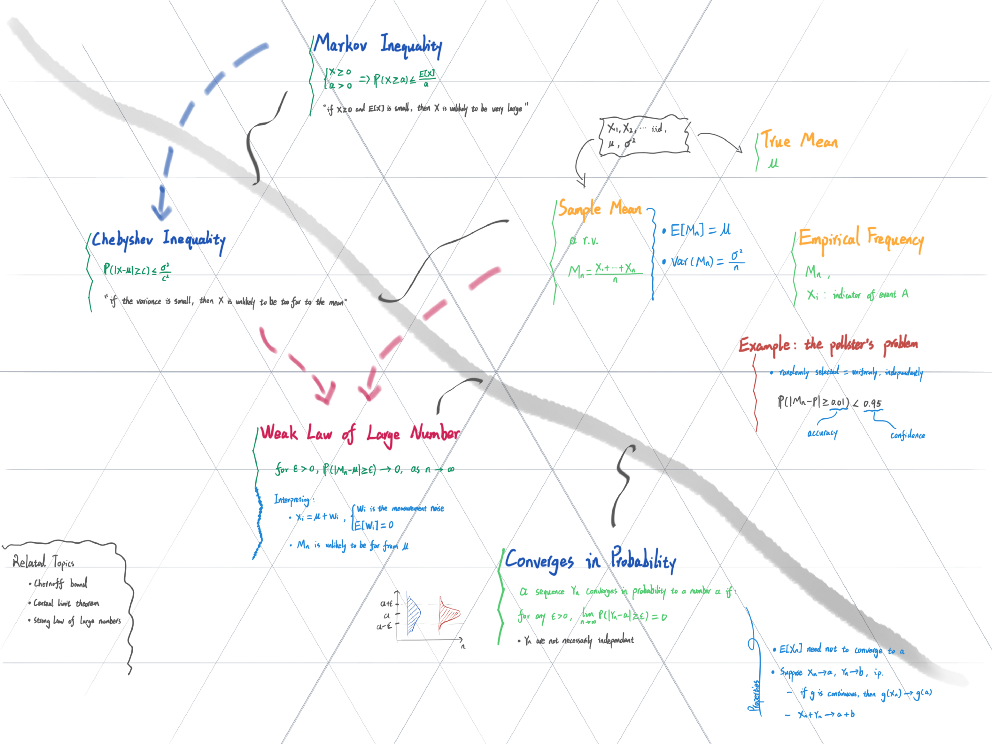 Markov Inequality
{X≥0
a>0 => P(X≥a) ≤ E[X]/a
"if X≥0 and E[X] is small, then X is unlikely to be very large"
X₁, X₂, ... iid,
μ, σ²
True Mean
μ
Sample Mean
a r.v.
Mₙ = X₁+···+Xₙ/n
• E[Mₙ] = μ
• Var(Mₙ) = σ²/n
Empirical Frequency
Mₙ,
Xᵢ : indicator of event A
Chebyshev Inequality
P(|X-μ|≥c) ≤ σ²/c²
"if the variance is small, then X is unlikely to be too far to the mean"
Example: the pollster's problem
• randomly selected = uniformly, independently
P(|Mₙ-P|≥0.01) < 0.95
accuracy
confidence
Weak Law of Large Number
for ε>0, P(|Mₙ-μ|≥ε) → 0, as n → ∞
Interpreting:
• Xᵢ = μ + Wᵢ, {Wᵢ is the measurement noise
E[Wᵢ] = 0
• Mₙ is unlikely to be far from μ
Related Topics
• Chernoff bound
• Central limit theorem
• Strong Law of large numbers
Converges in Probability
a sequence Yₙ converges in probability to a number a if:
for any ε>0, lim n→∞ P(|Yₙ-a|≥ε) = 0
• Yₙ are not necessarily independent
a+ε
a
a-ε
n
Properties
• E[Xₙ] need not to converge to a
• Suppose Xₙ→a, Yₙ→b, i.p.
- if g is continuous, then g(Xₙ) → g(a)
- Xₙ+Yₙ → a+b